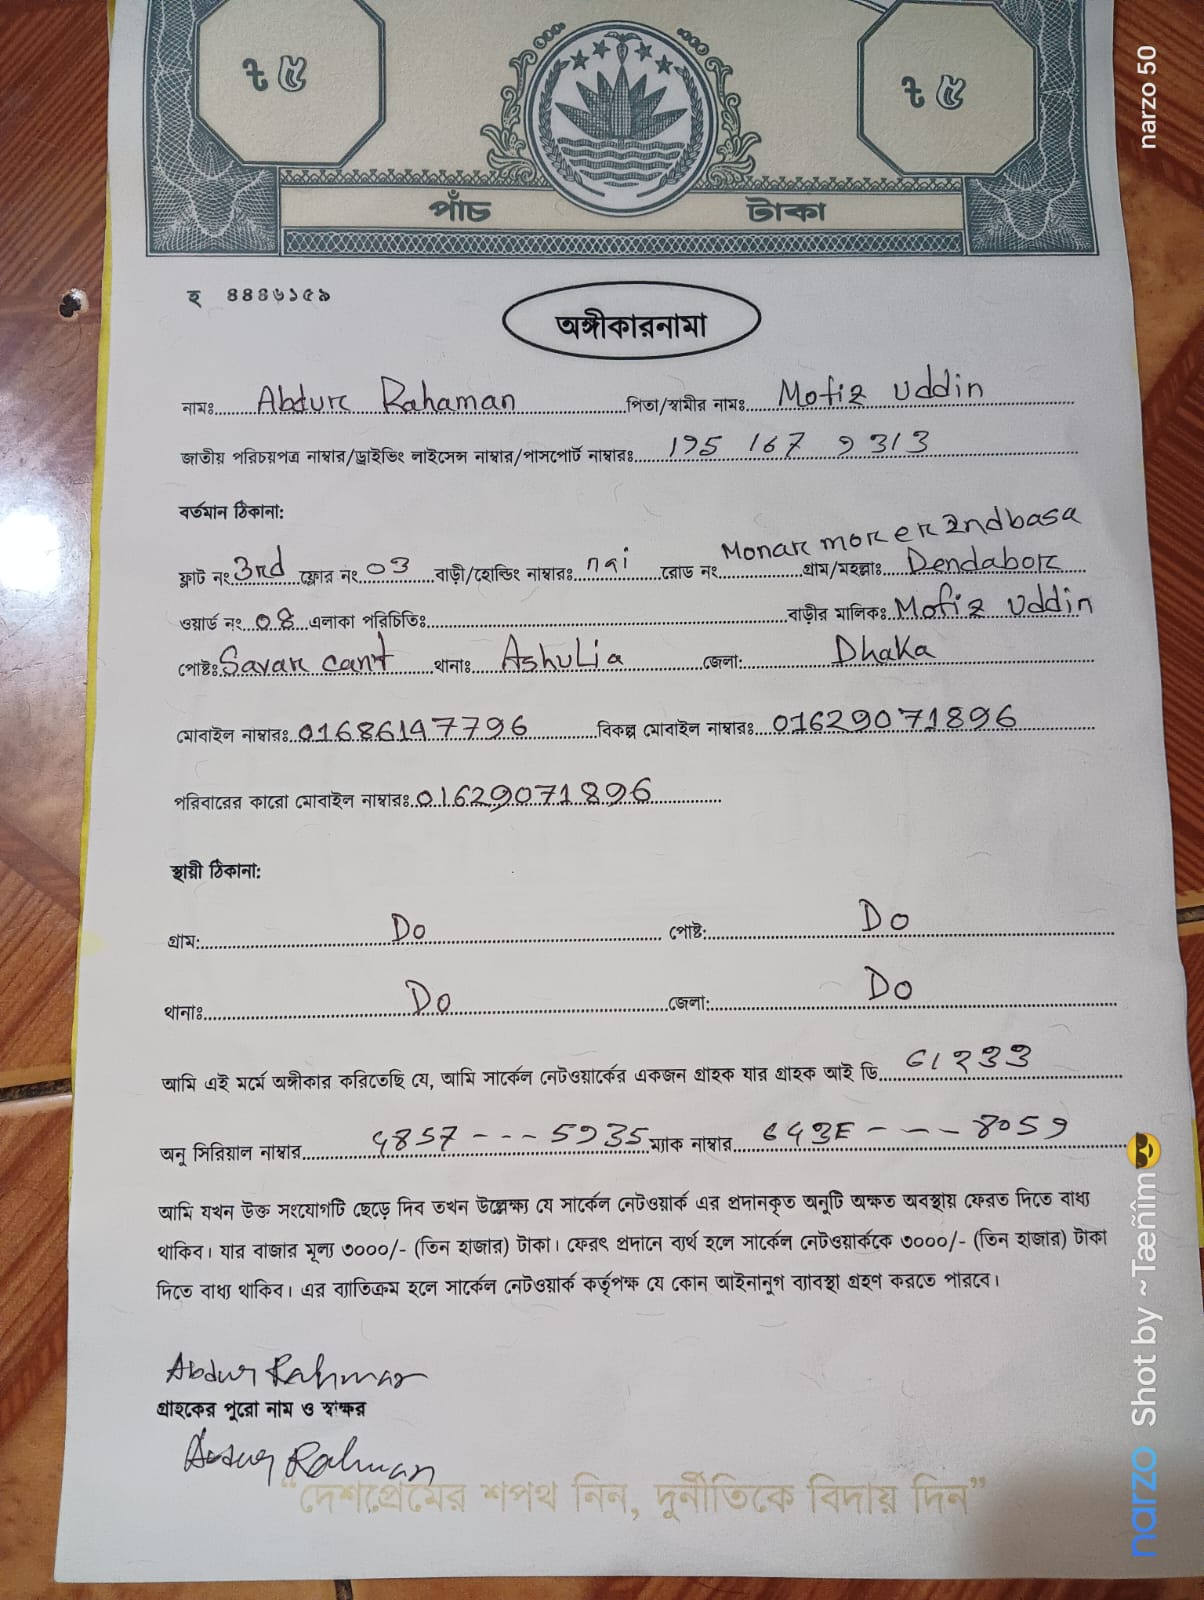 ৳ ৫ ৳ ৫
পাঁচ টাকা
হ ৪৪৪৬১৫৯
অঙ্গীকারনামা
নামঃ Abdur Rahaman পিতা/স্বামীর নামঃ Mofiz uddin
জাতীয় পরিচয়পত্র নাম্বার/ড্রাইভিং লাইসেন্স নাম্বার/পাসপোর্ট নাম্বারঃ 195 167 9313
বর্তমান ঠিকানা:
Monar morer 2nd basa
ফ্লাট নং 3rd ফ্লোর নং 03 বাড়ী/হোল্ডিং নাম্বারঃ nai রোড নং গ্রাম/মহল্লাঃ Dendabor
ওয়ার্ড নং 08 এলাকা পরিচিতিঃ বাড়ীর মালিকঃ Mofiz Uddin
পোষ্টঃ Savar cant থানাঃ Ashulia জেলা: Dhaka
মোবাইল নাম্বারঃ 01686147796 বিকল্প মোবাইল নাম্বারঃ 01629071896
পরিবারের কারো মোবাইল নাম্বারঃ 01629071896
স্থায়ী ঠিকানা:
গ্রাম: Do পোষ্ট: Do
থানাঃ Do জেলা: Do
আমি এই মর্মে অঙ্গীকার করিতেছি যে, আমি সার্কেল নেটওয়ার্কের একজন গ্রাহক যার গ্রাহক আই ডি
অনু সিরিয়াল নাম্বার 4857 --- 5935 ম্যাক নাম্বার 643E --- 8059
আমি যখন উক্ত সংযোগটি ছেড়ে দিব তখন উল্লেক্ষ্য যে সার্কেল নেটওয়ার্ক এর প্রদানকৃত অনুটি অক্ষত অবস্থায় ফেরত দিতে বাধ্য
থাকিব। যার বাজার মূল্য ৩০০০/- (তিন হাজার) টাকা। ফেরৎ প্রদানে ব্যর্থ হলে সার্কেল নেটওয়ার্ককে ৩০০০/- (তিন হাজার) টাকা
দিতে বাধ্য থাকিব। এর ব্যাতিক্রম হলে সার্কেল নেটওয়ার্ক কর্তৃপক্ষ যে কোন আইনানুগ ব্যাবস্থা গ্রহণ করতে পারবে।
Abdur Rahman
গ্রাহকের পুরো নাম ও স্বাক্ষর
Abdur Rahman
“দেশপ্রেমের শপথ নিন, দুর্নীতিকে বিদায় দিন”
narzo 50
narzo Shot by ~Tæñîm😎